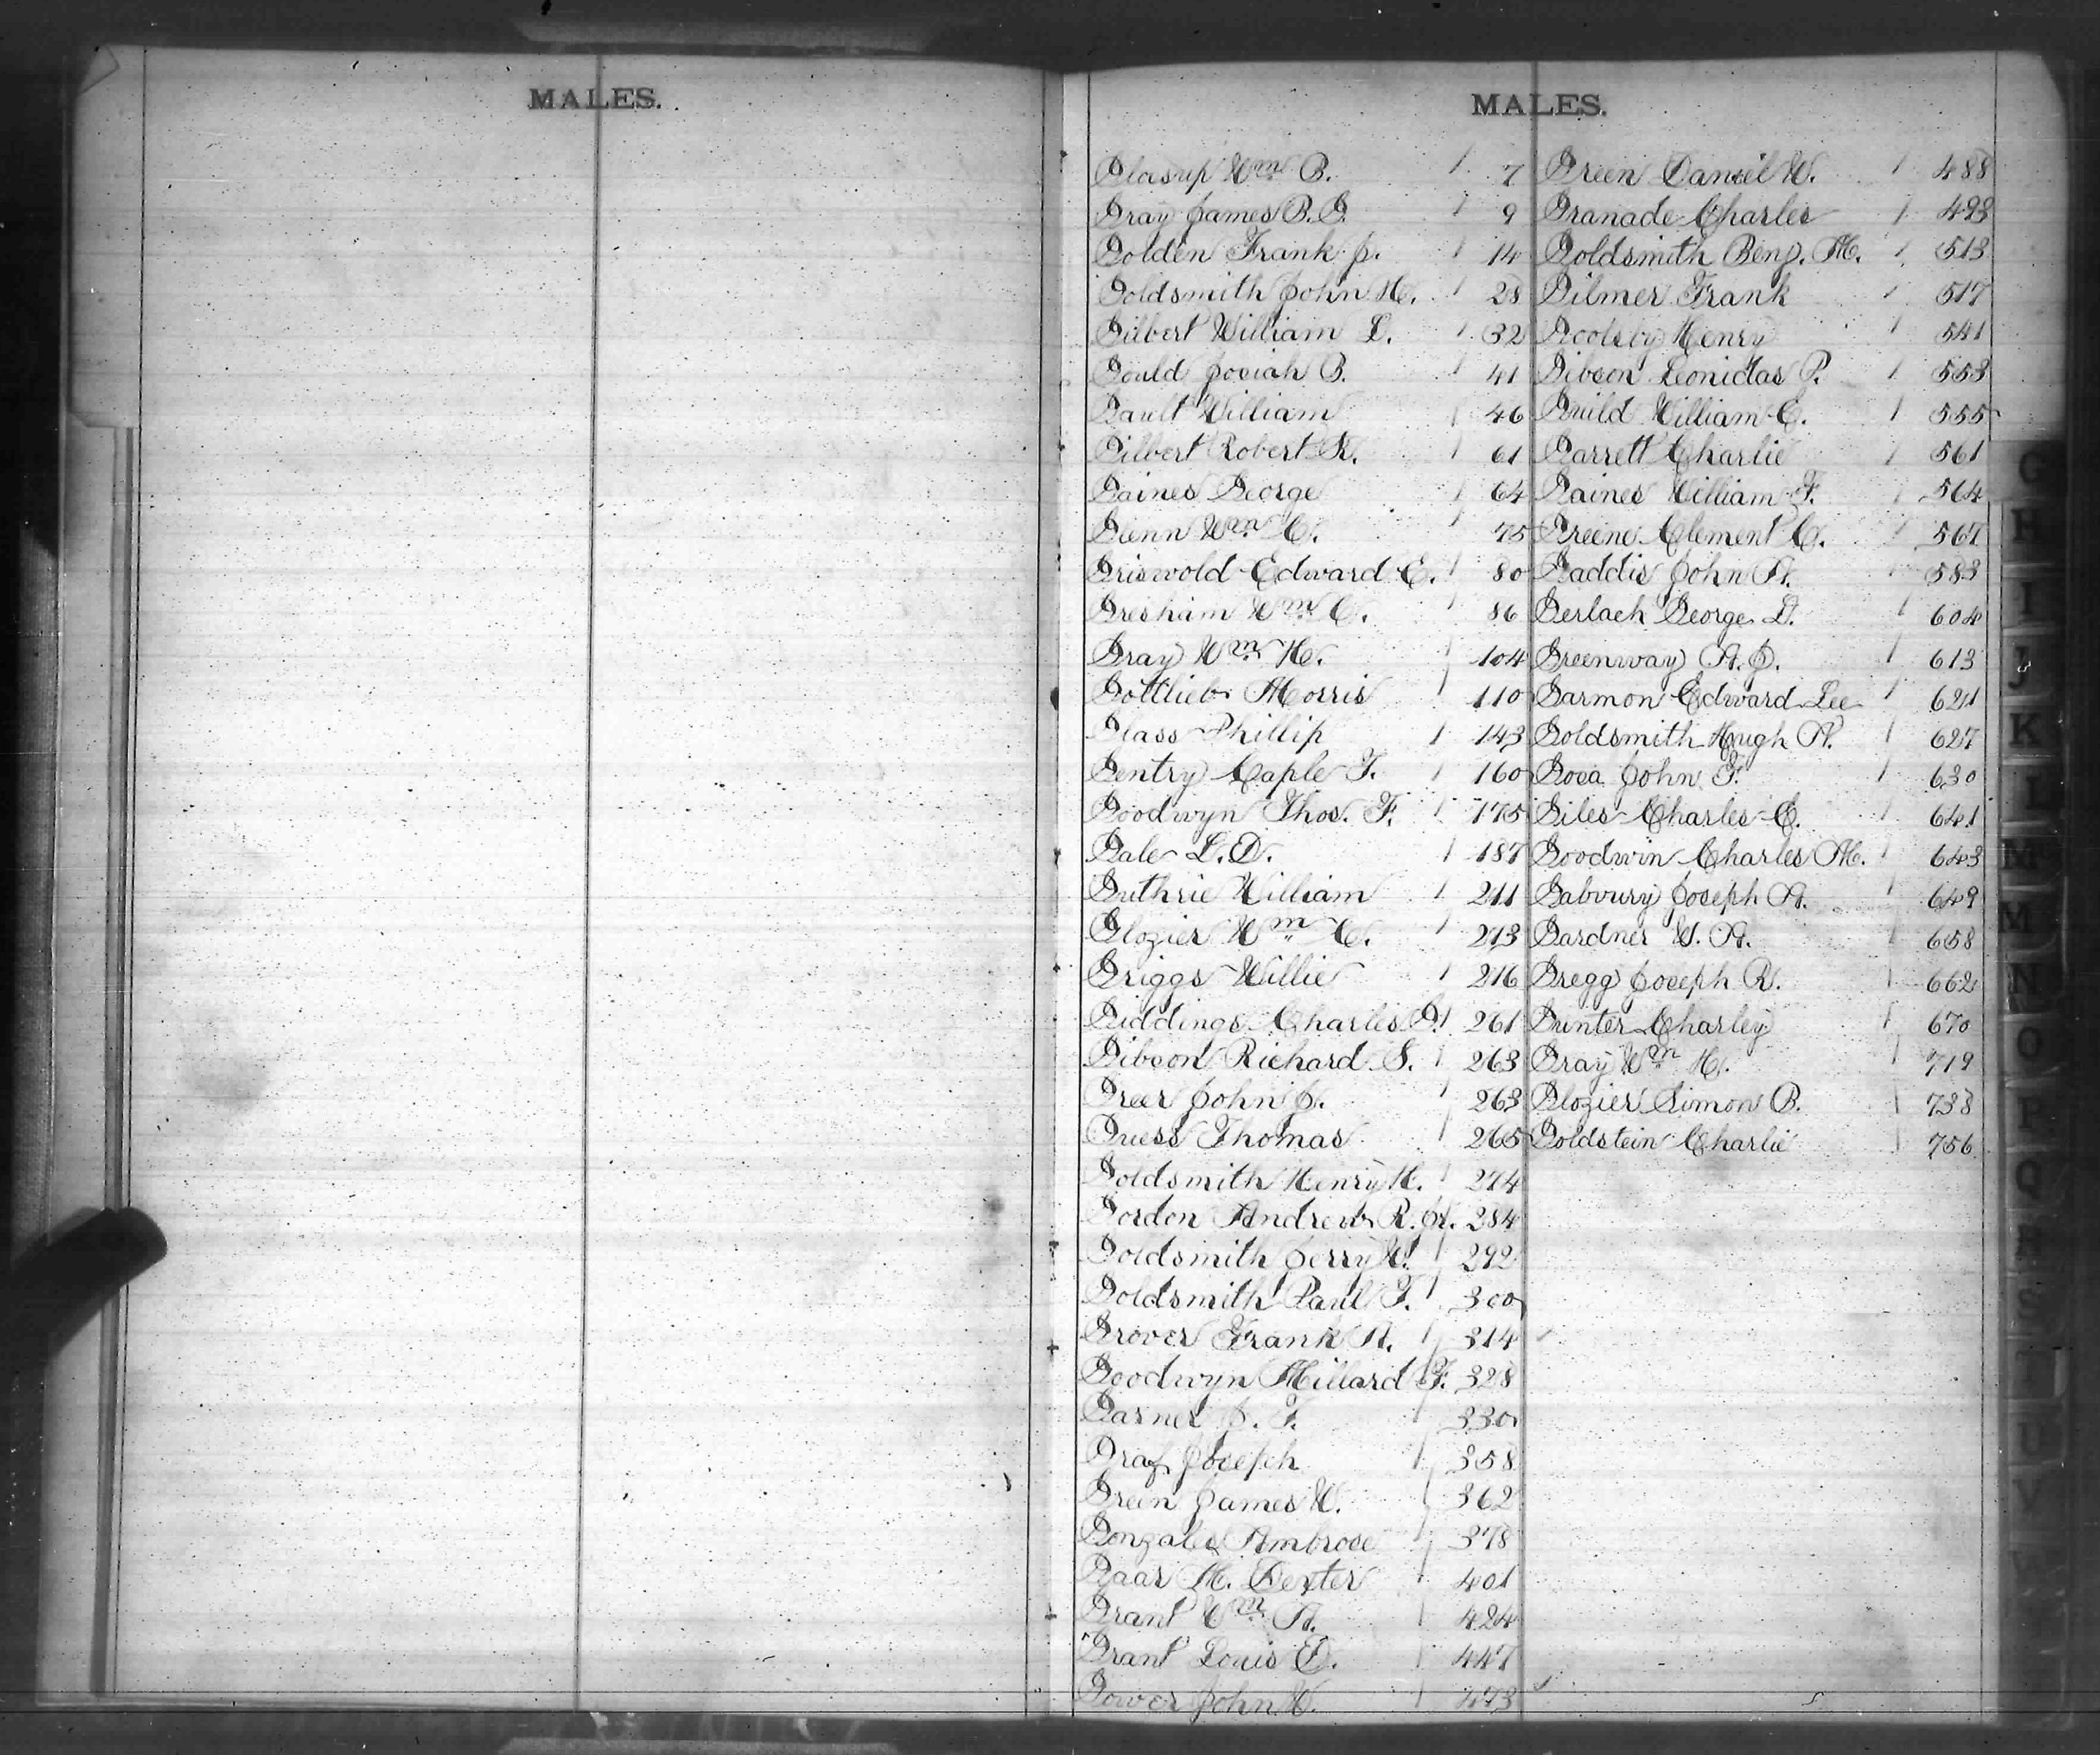 MALES.
MALES.
Glasup Wm B. 7
Gray James B. G. 9
Golden Frank J. 14
Goldsmith John H. 28
Gilbert William L. 32
Gould Josiah B. 41
Gault William 46
Gilbert Robert K. 61
Gaines George 64
Glenn Wm C. 75
Griswold Edward E. 80
Gresham Wm C. 86
Gray Wm H. 104
Gottlieb Morris 110
Glass Phillip 143
Gentry Caple T. 160
Goodwyn Thos. F. 175
Gale L. D. 187
Guthrie William 211
Glozier Wm C. 213
Griggs Willie 216
Giddings Charles G. 261
Gibson Richard S. 263
Greer John J. 263
Guess Thomas 265
Goldsmith Henry H. 274
Gordon Andrew R. Jr. 284
Goldsmith Jerry W. 292
Goldsmith Paul T. 300
Grover Frank A. 314
Goodwyn Millard F. 328
Garner J. T. 330
Graf Joseph 358
Green James W. 362
Gonzales Ambrose 378
Gaar M. Dexter 401
Grant Wm A. 424
Grant Louis E. 447
Gower John W. 473
Green Daniel W. 488
Granade Charles 493
Goldsmith Benj. M. 513
Gilmer Frank 517
Goolsby Henry 541
Gibson Leonidas P. 553
Guild William E. 555
Garrett Charlie 561
Gaines William F. 564
Greene Clement C. 567
Gaddis John A. 583
Gerlach George D. 604
Greenway A. J. 613
Garmon Edward Lee 621
Goldsmith Hugh A. 627
Goza John F. 630
Giles Charles C. 641
Goodwin Charles M. 643
Gaboury Joseph A. 649
Gardner W. A. 658
Gregg Joseph R. 662
Gunter Charley 670
Gray Wm H. 719
Glozier Simon B. 738
Goldstein Charlie 756
G
H
I
J
K
L
M
M
N
O
P
Q
R
S
T
U
V